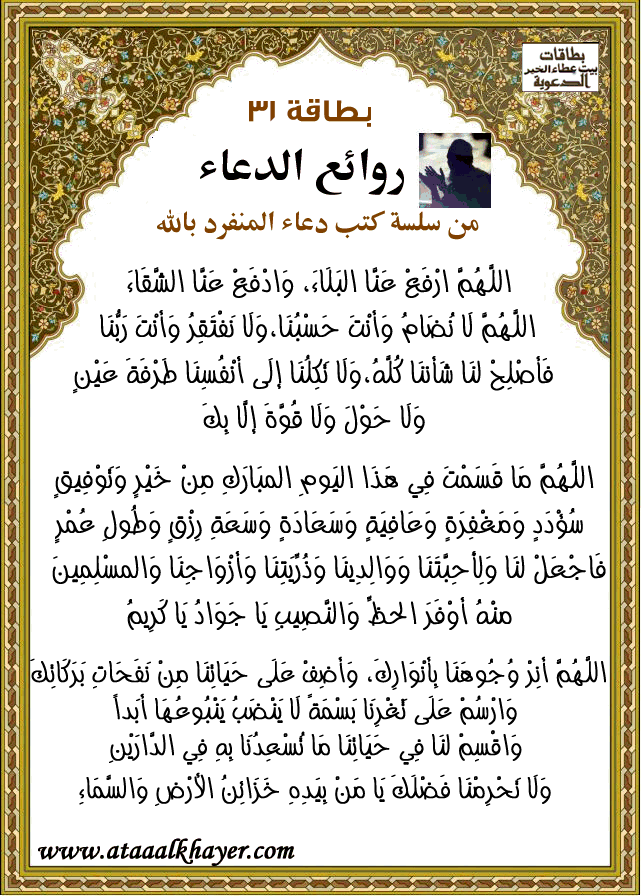 بطاقات
بيت عطاء الخير
الدعوية
بطاقة ٣١
روائع الدعاء
من سلسة كتب دعاء المنفرد بالله
اللَّهُمَّ ارْفَعْ عَنَّا البَلَاءَ، وَادْفَعْ عَنَّا الشَّقَاءَ
اللَّهُمَّ لَا نُضَامُ وَأَنْتَ حَسْبُنَا،وَلَا نَفْتَقِرُ وَأَنْتَ رَبُّنَا
فَأَصْلِحْ لنَا شَأنَنا كُلَّهُ،وَلَا تَكِلْنَا إلَى أنْفُسِنَا طَرْفَةَ عَيْنٍ
وَلَا حَوْلَ وَلَا قُوَّةَ إلَّا بِكَ
اللَّهُمَّ مَا قَسَمْتَ فِي هَذَا اليَومِ المبَارَكِ مِنْ خَيْرٍ وَتَوْفِيقٍ
سُؤْدَدٍ وَمَغْفِرَةٍ وَعَافِيَةٍ وَسَعَادَةٍ وَسَعَةِ رِزْقٍ وَطُولِ عُمْرٍ
فَاجْعَلْ لنَا وَلِأحِبَّتَنَا وَوَالِدِينَا وَذُرِّيَتِنَا وَأزْوَاجِنَا وَالمسْلِمِينَ
مِنْهُ أوْفَرَ الحظِّ وَالنَّصِيبِ يَا جَوَادُ يَا كَرِيمُ
اللَّهُمَّ أنِرْ وُجُوهَنَا بِأنْوَارِكَ، وَأضِفْ عَلَى حَيَاتِنَا مِنْ نَفَحَاتِ بَرَكَاتِكَ
وَارْسُمْ عَلَى ثَغْرِنَا بَسْمَةً لَا يَنْضَبُ يَنْبُوعُهَا أبَداً
وَاقْسِمْ لنَا فِي حَيَاتِنَا مَا تُسْعِدُنَا بِهِ فِي الدَّارَيْنِ
وَلَا تَحْرِمْنَا فَضْلَكَ يَا مَنْ بِيَدِهِ خَزَائِنُ الأرْضِ وَالسَّمَاءِ
www.ataaalkhayer.com